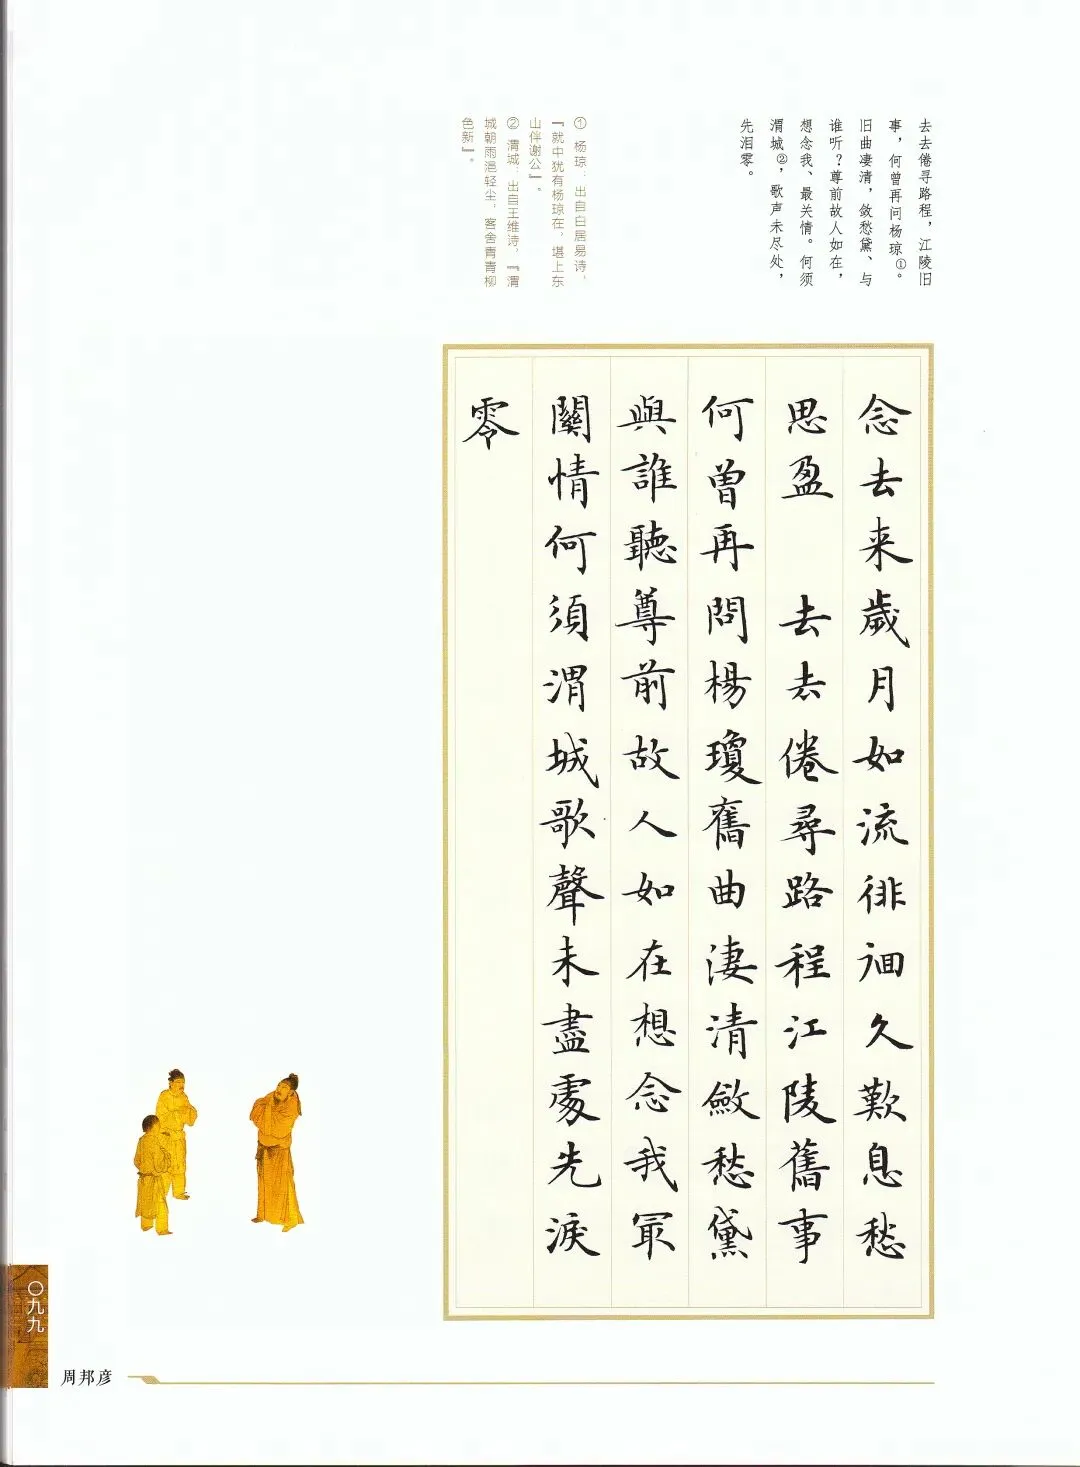 去去倦寻路程，江陵旧
事，何曾再问杨琼①。
旧曲凄清，敛愁黛、与
谁听？尊前故人如在，
想念我、最关情。何须
渭城②，歌声未尽处，
先泪零。
① 杨琼：出自白居易诗，
『就中犹有杨琼在，堪上东
山伴谢公』。
② 渭城：出自王维诗，『渭
城朝雨浥轻尘，客舍青青柳
色新』。
念去来歲月如流徘徊久歎息愁
思盈 去去倦尋路程江陵舊事
何曾再問楊瓊舊曲淒清斂愁黛
與誰聽尊前故人如在想念我冣
關情何須渭城歌聲未盡處先淚
零
〇九九
周邦彦